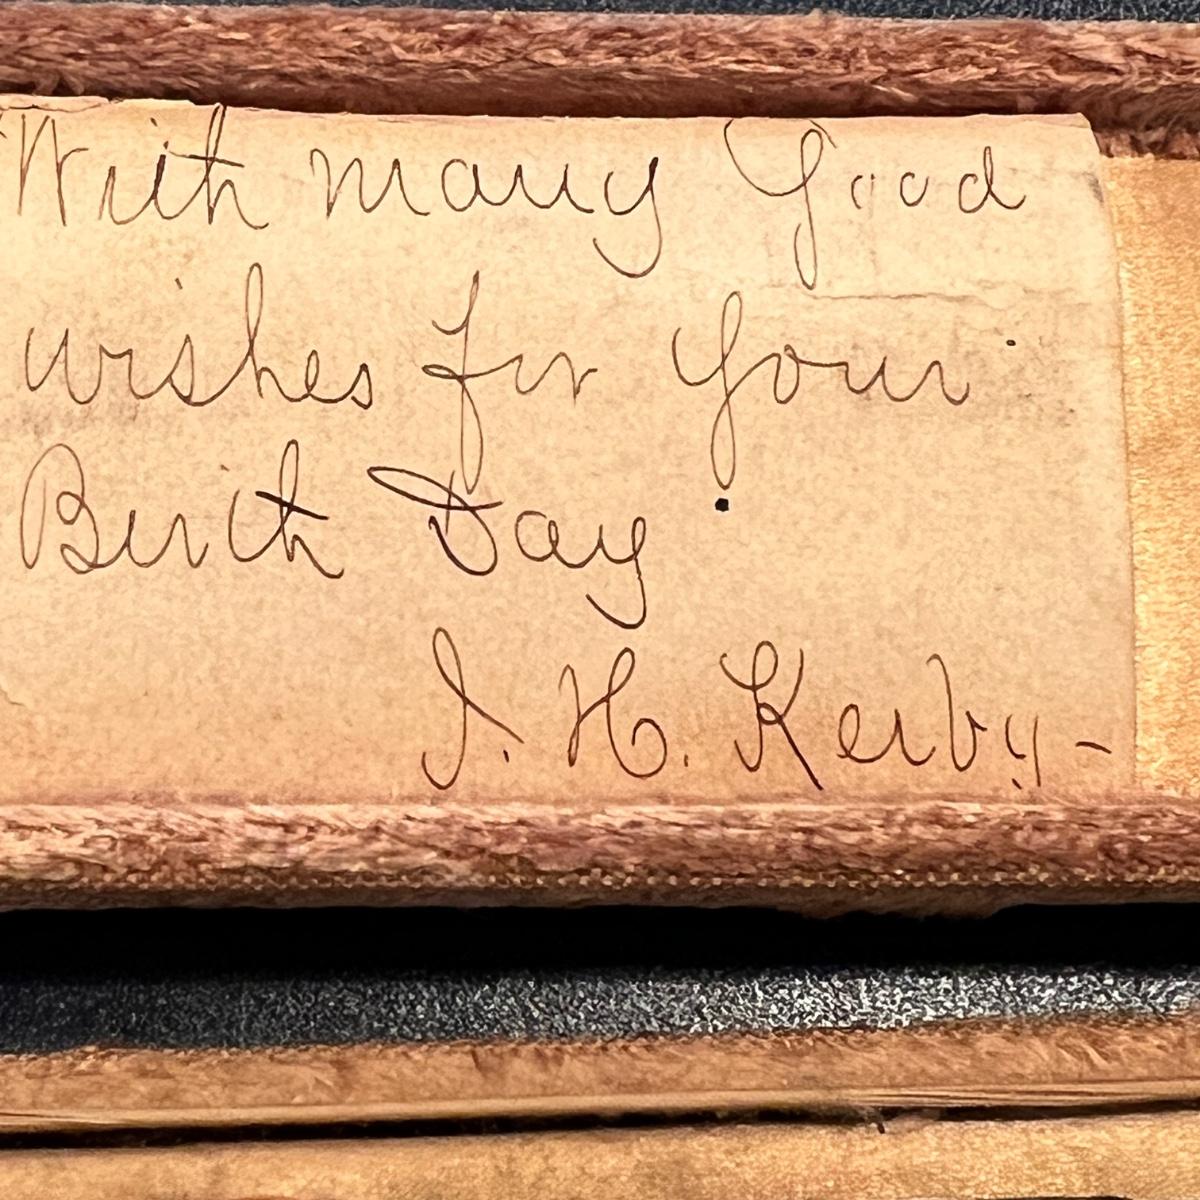 With many Good
wishes for your
Birth Day.
J. H. Kerby-